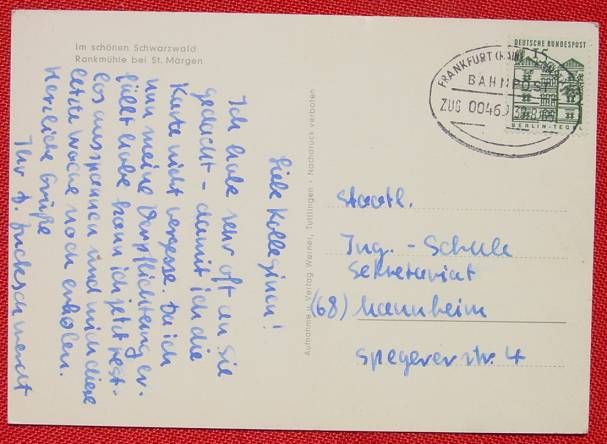 Im schönen Schwarzwald
Rankmühle bei St. Märgen
Liebe Kolleginnen!
Ich habe sehr oft an Sie
gedacht - damit ich die
Karte nicht vergesse. Da ich
nun meine Verpflichtung er-
füllt habe kann ich jetzt rest-
los ausspannen und mich diese
letzte Woche noch erholen.
Herzliche Grüße
Ihr
Aufnahme u. Verlag Werner, Tuttlingen · Nachdruck verboten
DEUTSCHE BUNDESPOST
15
BERLIN-TEGEL
FRANKFURT (MAIN)
BAHNPOST
ZUG 00463
Staatl.
Ing. - Schule
Sekretariat
(68) Mannheim
Speyerer str. 4